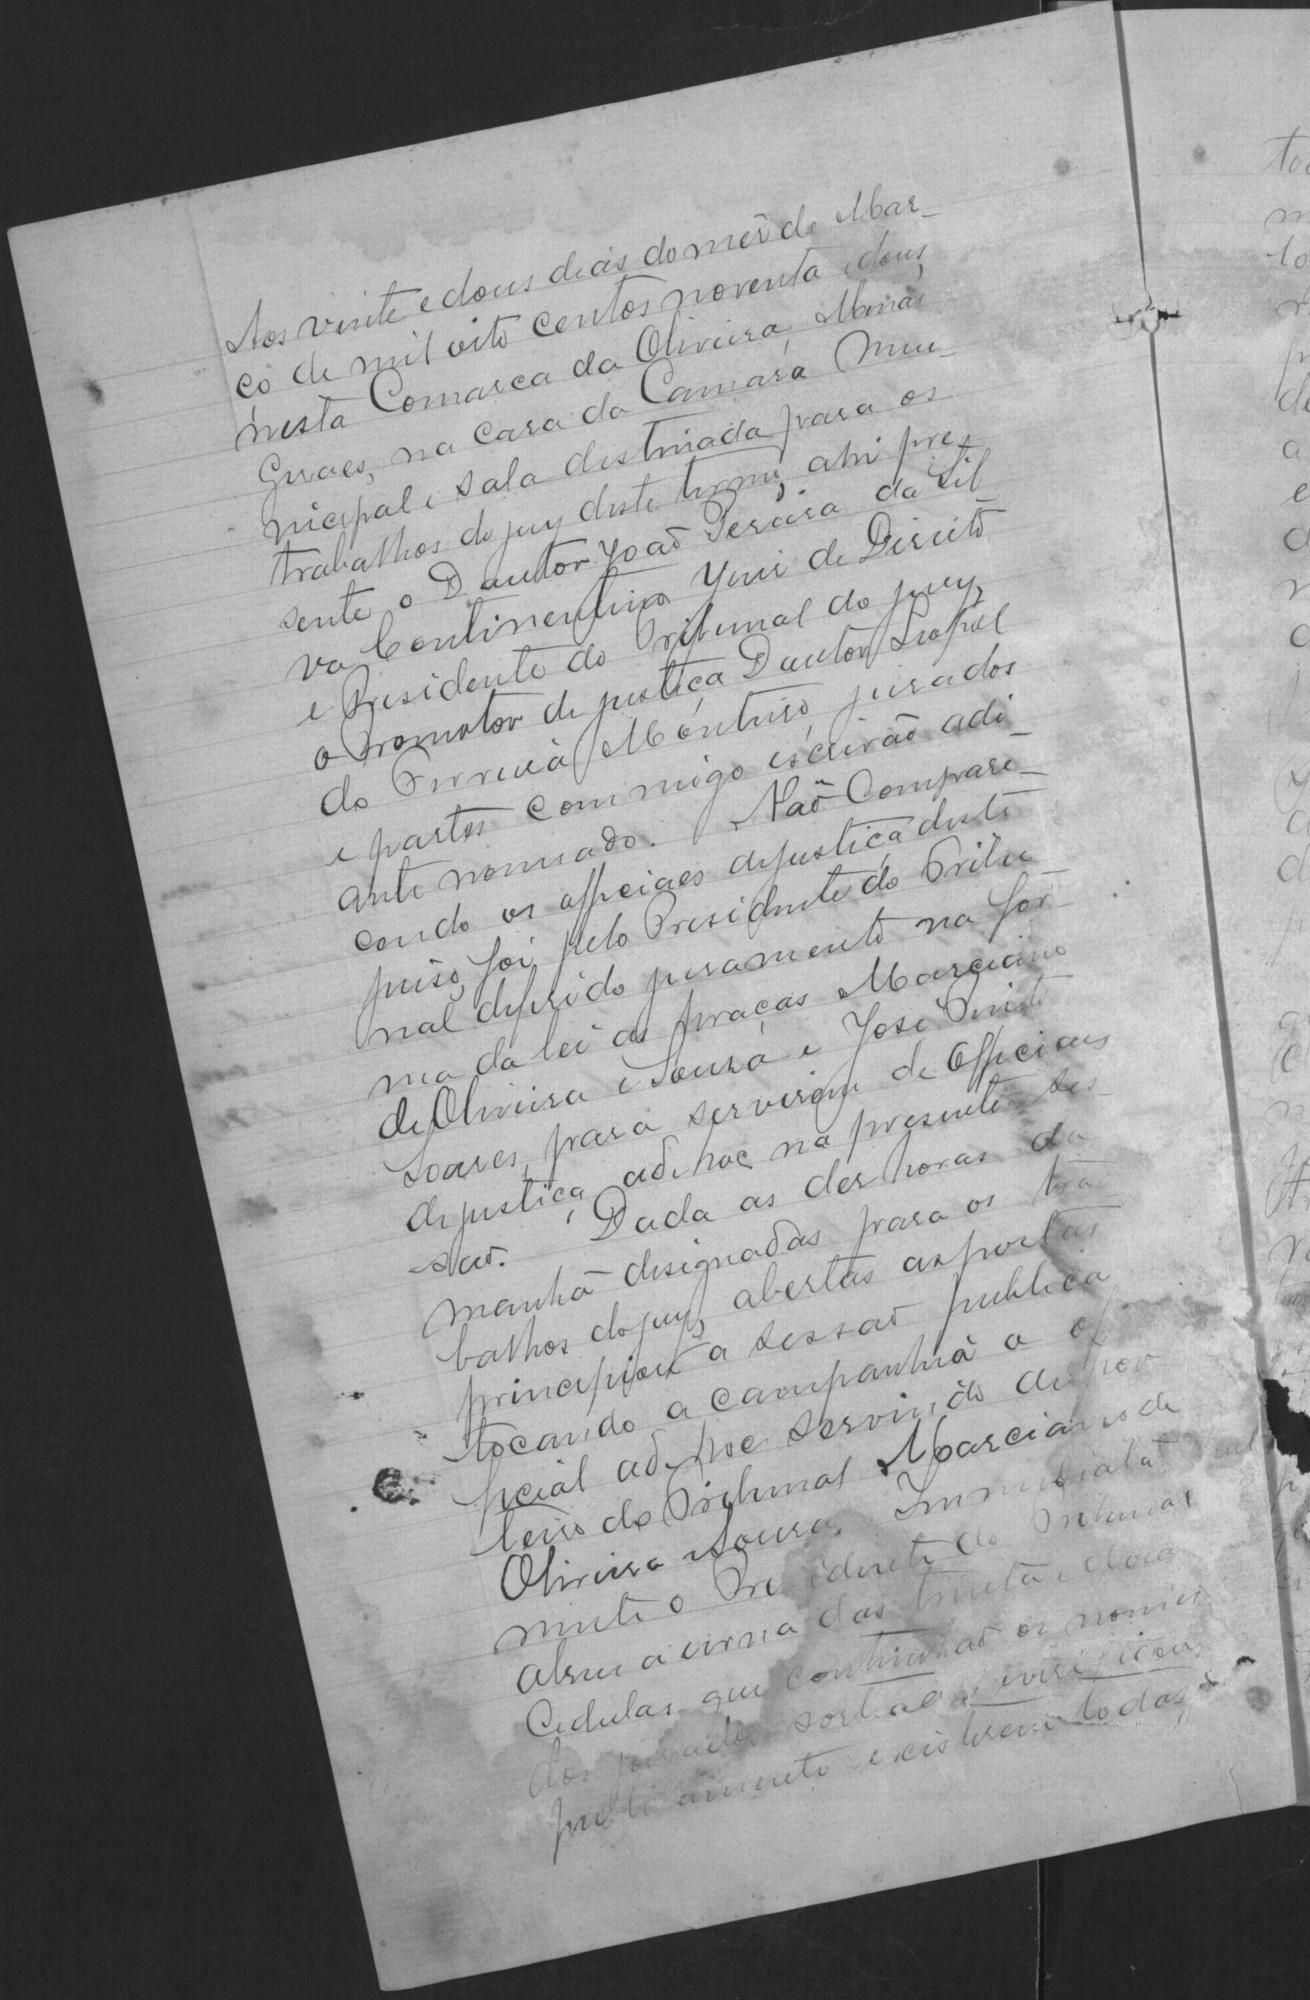 Aos vinte e dous dias do mês de Mar-
ço de mil oito centos noventa e dous,
nesta Comarca da Oliveira, Minas
Geraes, na casa da Camara Mu-
nicipal e sala destinada para os
trabalhos do jury deste termo, ahi pre-
sente o Doutor João Pereira da Sil-
va Continentino Juiz de Direito
e Presidente do Tribunal do jury,
o promotor de justiça Doutor Leopol
do Correia Monteiro jurados
e partes commigo escrivão adi-
ante nomeado. Não Compare-
cendo os officiaes de justiça deste
juiso, foi pelo Presidente do Tribu
nal deferido juramento na for-
ma da lei as praças Marciano
de Oliveira e Souza e José Pinto
Soares, para servirem de officiaes
de justiça ad-hoc na presente ses-
são. Dada as dez horas da
manhã designadas para os tra-
balhos do jury, abertas as portas
principiou a sessão publica
tocando a campanhia o of
ficial ad-hoc servindo de por
teiro do Tribunal Marciano de
Oliveira e Souza. Immediata
mente o Presidente do Tribunal
abriu a urna das trinta e doas
Cedulas que continhão os nomes
dos jurados sorteados e verificou
publicamente existirem todas,